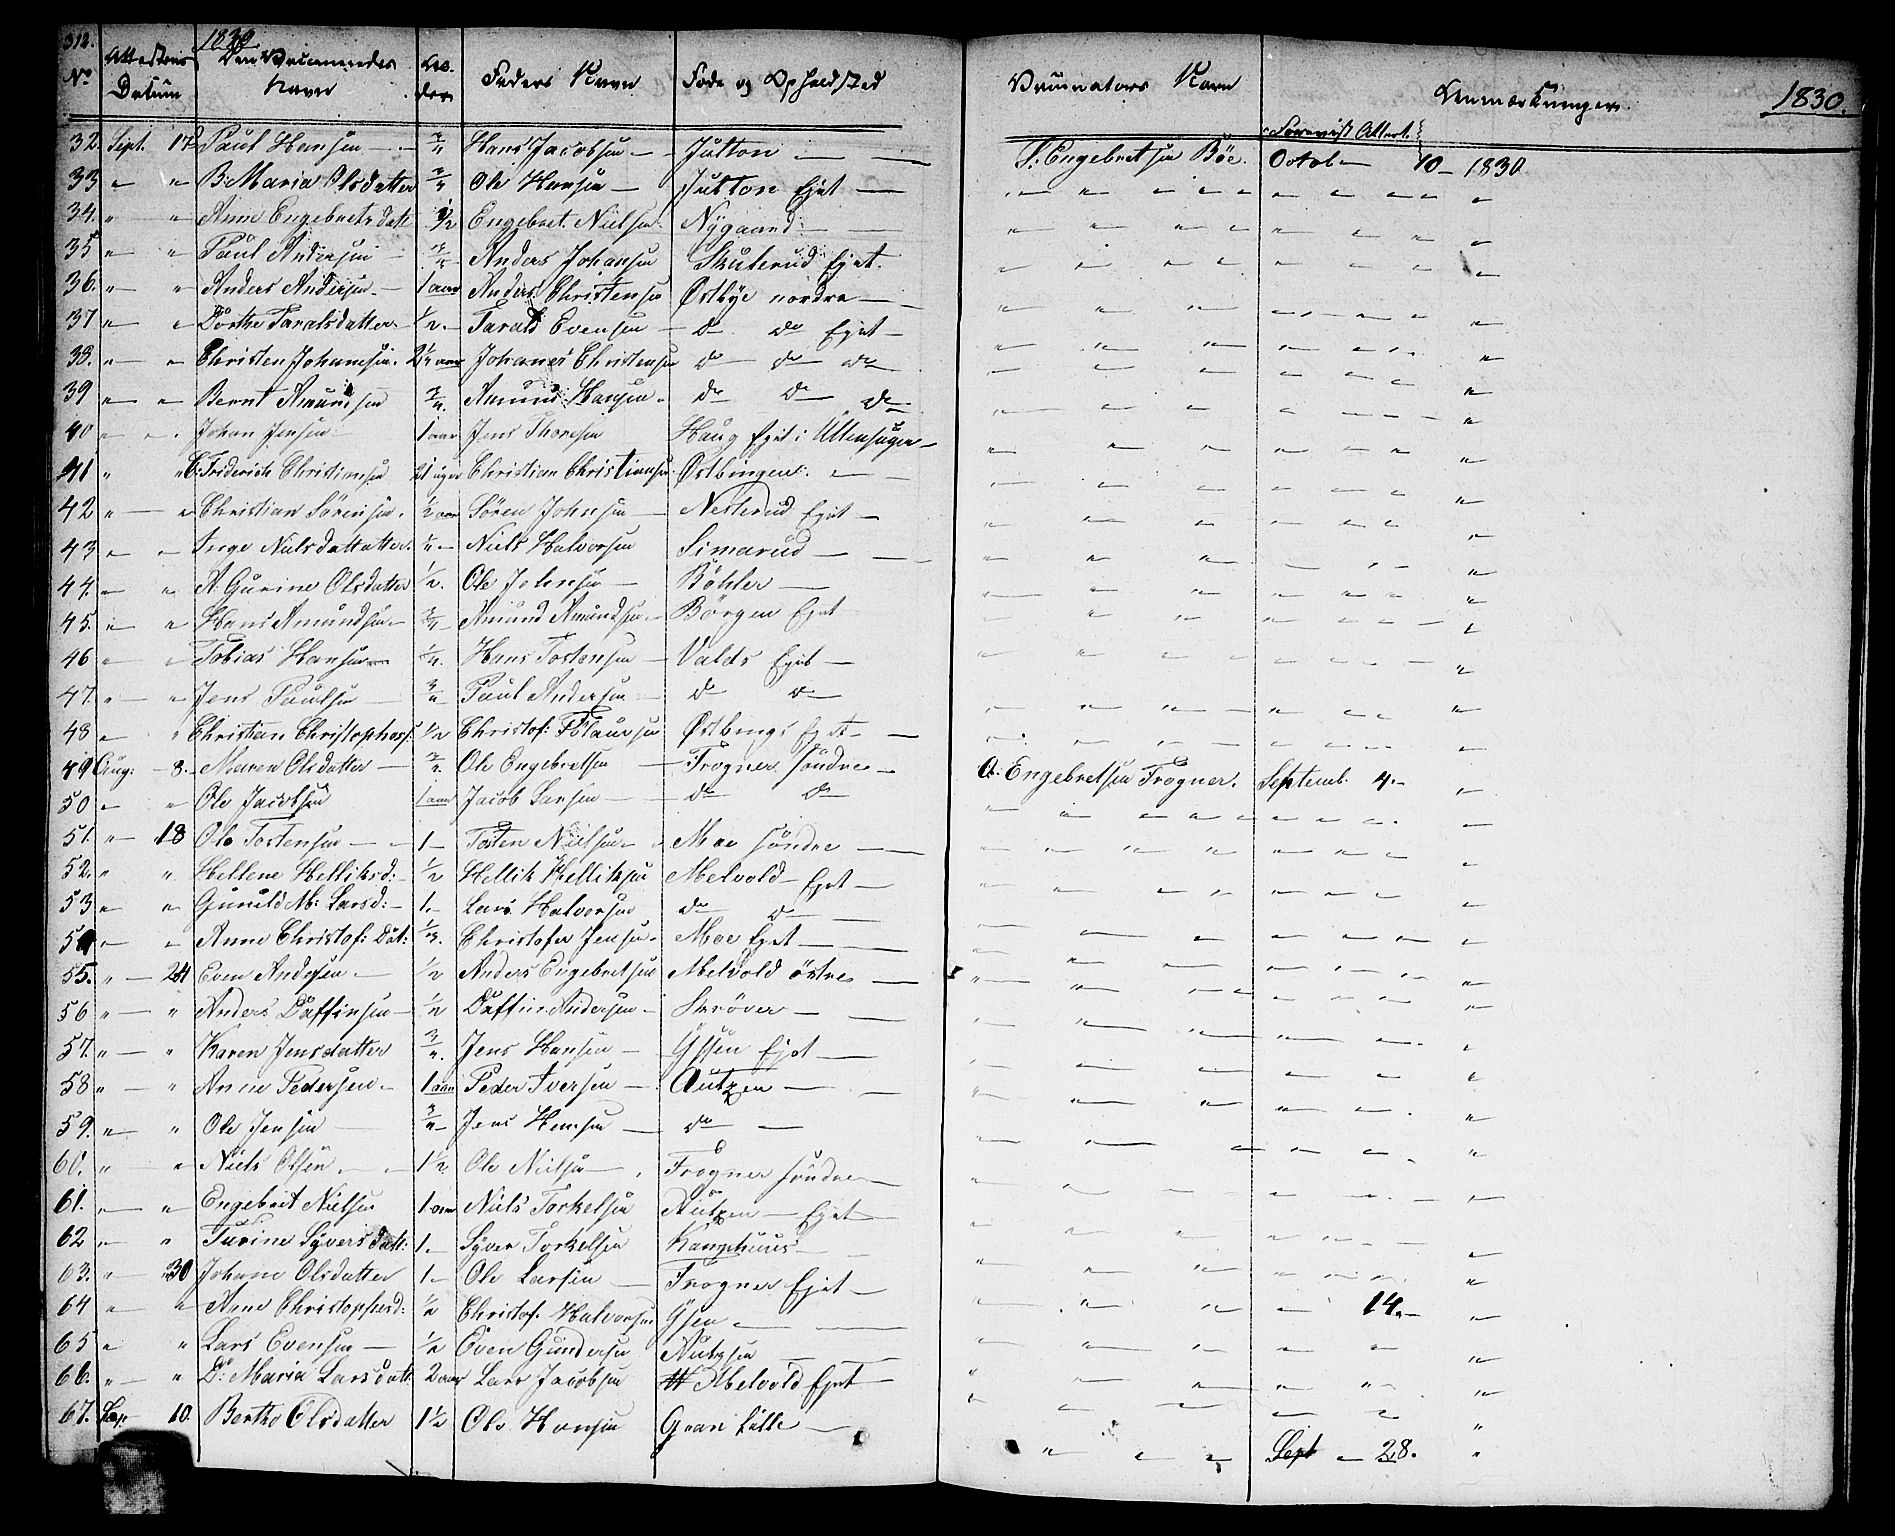 312. 1830
No Attestens Datum Den Vaccineredes Navn Al-der Faders Navn Føde og Opholdsted Vaccinators Navn Anmærkninger 1830.
Forevist Attest.
32. Sept. 17 Paul Hansen — 3/4 Hans Jacobsen — Jutton — T: Engebretsen Böe. Octob — 10 — 1830
33 " " B: Maria Olsdatter 3/4 Ole Hansen — Jutton Ejet —
34. " " Anne Engebretsdatt 1/2 Engebret Nielsen Nygaard —
35 " " Paul Andersen 3/4 Anders Johansen Skuterud Ejet.
36. " " Anders Andersen — 1 aar Anders Christensen Østbye nordre —
37 " " Dorthe Taralsdatter 1/2 — Tarald Evensen — do do Ejet —
38. " " Christen Johannesen. 2 1/2 aar Johanes Christensen do — do — do
39 " " Bernt Amundsen 3/4. Amund Hansen. do do do
40 " " Johan Jensen 1 aar Jens Thoresen Haug Ejet i Ullensager —
41 " " C: Friderich Christiansen 21 uger Christian Christiansen Østbingen. —
42 " " Christian Sörensen. 1/2 aar Sören Johnsen — Nesterud Ejet —
43 " " Inge Nielsdattatter. 1/4 — Niels Halvorsen Simarud —
44. " " A: Gurine Olsdatter 1/2. Ole Johnsen — Böhler —
45. " " Hans Amundsen — 3/4 Amund Amundsen — Börgen Ejet
46 " " Tobias Hansen — 1/4. Hans Tostensen — Valds Ejet —
47. " " Jens Paulsen — 3/4 Paul Andersen — do do —
48 " " Christian Christophers: 1/2 Christof: Olausen Østbings Ejet —
49 Aug: — 8. Maren Olsdatter — 3/4. Ole Engebretsen — Frogner söndre — O: Engebretsen Frogner. Septemb. 4. —
50 " " Ole Jacobsen 1 aar Jacob Larsen — do do
51. " 18 Ole Tostensen — 1 — Tosten Nielsen — Moe söndre —
52. " " Hellene Helliksd: — 1/2 Hellik Helliksen Melvold — Ejet —
53 " " Gunild M: Larsd: — 1. — Lars Halvorsen do do —
54 " " Anne Christof: Dat: 1/4. Christofer Jensen. Moe Ejet —
55. " — 24 Even Andersen — 1/2 Anders Engebretsen Melvold östre —
56 " " Anders Daffinsen — 1/2 Daffin Andersen — Skröver —
57. " " Karen Jensdatter 3/4. Jens Hansen — Yssen Ejet —
58 " " Anne Pedersen — 1 aar Peder Iversen — Autzen —
59. " " Ole Jensen — 3/4 Jens Hansen — do —
60. " " Niels Olsen — 1 1/2 Ole Nielsen — Frogner söndre —
61. " " Engebret Nielsen 1 aar Niels Torkelsen Autzen — Ejet —
62 " " Turine Syversdatt: 1. — Syver Torkelsen Kamphuus —
63. " 30 Johane Olsdatter 1 — Ole Larsen — Frogner Ejet —
64 " " Anne Christophersd: 1/2 Christof. Halvorsen Ysen — 14. —
65 " " Lars Evensen — 1/2 Even Gundersen Autzen
66. " " D: Maria Larsdatt: 2 aar Lars Jacobsen Melvold Ejet —
67. Sep: 10. Berthe Olsdatter 1 1/2 Ole Hansen Graan Lille — Sept — 28.